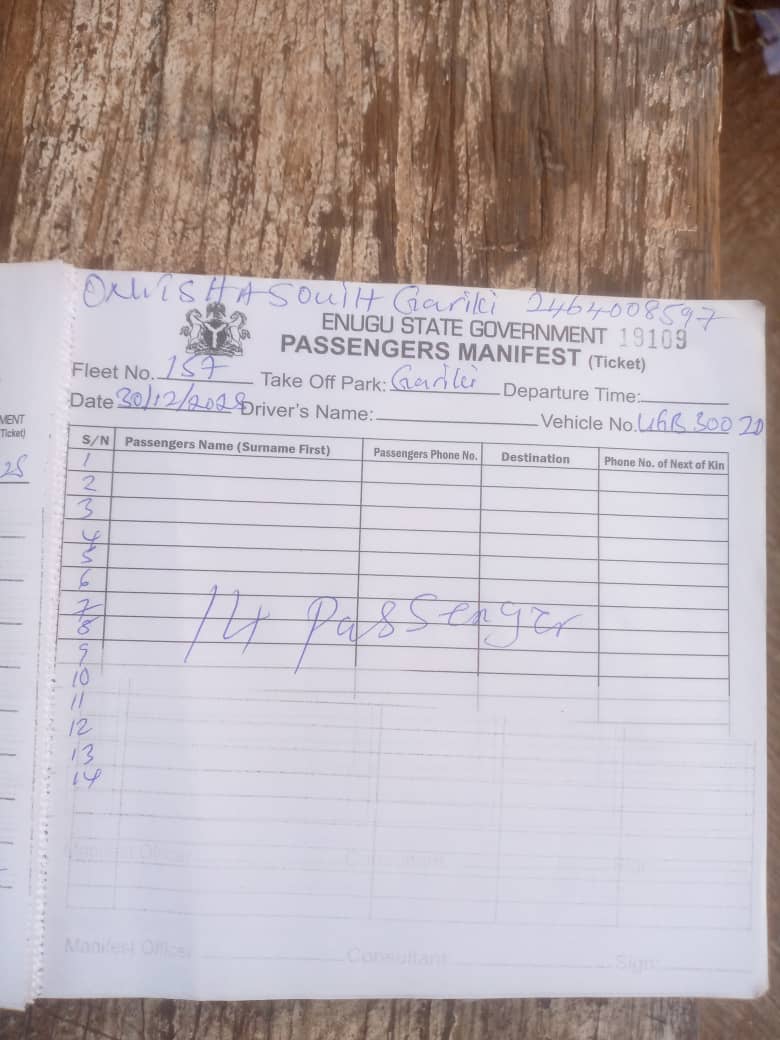 ONITSHA SOUTH Gariki 2464008597
ENUGU STATE GOVERNMENT 19109
PASSENGERS MANIFEST (Ticket)
Fleet No. 157 Take Off Park: Gariki Departure Time:
Date 30/12/2025 Driver's Name: Vehicle No.
S/N Passengers Name (Surname First) Passengers Phone No. Destination Phone No. of Next of Kin
1
2
3
4
5
6
7
8
9
10
11
12
13
14
14 Passenger
Manifest Officer Consultant Sign:
Manifest Officer Consultant Sign:
MENT
Ticket)
25